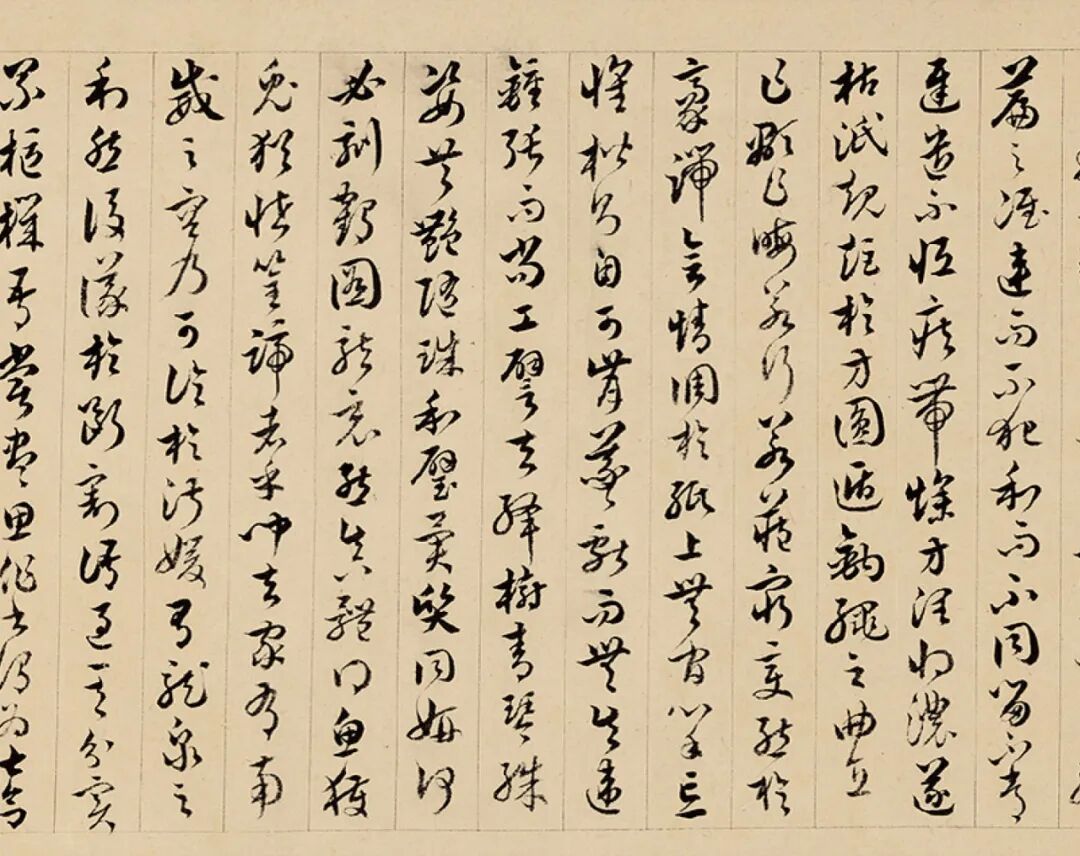 篇之准違而不犯和而不同留不常
遲遣不恒疾帶燥方潤將濃遂
枯泯規矩於方圓遁鉤繩之曲直
乍顯乍晦若行若藏窮變態於
豪端合情調於紙上無間心手忘
懷楷則自可背羲獻而無失違
鍾張而尚工譬夫絳樹青琴殊
姿共艷隨珠和璧異質同妍何
必刻鶴圖龍竟慚真體得魚獲
兔猶恡筌蹄者乎聞夫家有南
威之容乃可論於淑媛有龍泉之
利然後議於斷割語過其分實
累樞機吾嘗盡思作書謂為甚合